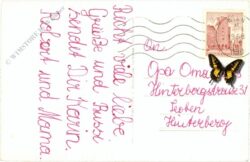 Recht viele liebe
Grüße und Bussi
sendet Dir Dein
Robert und Mama.
An
Opa Oma
Hinterbergstrasse 31
Leoben
Hinterberg